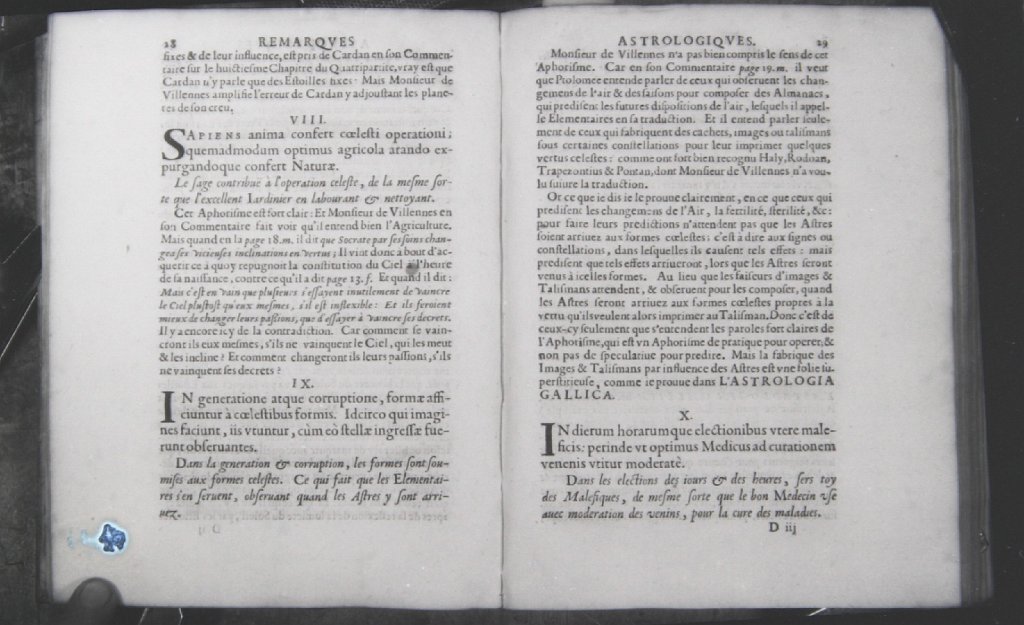 28 REMARQVES
fixes & de leur influence, est pris de Cardan en son Commen-
taire sur le huictiesme Chapitre du Quattripartite, vray est que
Cardan n'y parle que des Estoilles fixes: Mais Monsieur de
Villennes amplifie l'erreur de Cardan y adjoustant les plane-
tes de son creu.
VIII.
SAPIENS anima confert cœlesti operationi;
quemadmodum optimus agricola arando ex-
purgandoque confert Naturæ.
Le sage contribue à l'operation celeste, de la mesme sor-
te que l'excellent Iardinier en labourant & nettoyant.
Cet Aphorisme est fort clair: Et Monsieur de Villennes en
son Commentaire fait voir qu'il entend bien l'Agriculture.
Mais quand en la page 18. m. il dit que Socrate par ses soins chan-
gea ses vicieuses inclinations en vertus; Il vint donc a bout d'ac-
querir ce à quoy repugnoit la constitution du Ciel à l'heure
de sa naissance, contre ce qu'il a dit page 13. f. Et quand il dit:
Mais c'est en vain que plusieurs s'essayent inutilement de vaincre
le Ciel plustost qu'eux mesmes, s'il est inflexible: Et ils feroient
mieux de changer leurs passions, que d'essayer à vaincre ses decrets.
Il y a encore icy de la contradiction. Car comment se vain-
cront ils eux mesmes, s'ils ne vainquent le Ciel, qui les meut
& les incline? Et comment changeront ils leurs passions, s'ils
ne vainquent ses decrets?
IX.
IN generatione atque corruptione, formæ affi-
ciuntur à cœlestibus formis. Idcirco qui imagi-
nes faciunt, iis vtuntur, cùm eò stellæ ingressæ fue-
runt obseruantes.
Dans la generation & corruption, les formes sont sou-
mises aux formes celestes. Ce qui fait que les Elementai-
res s'en seruent, obseruant quand les Astres y sont arri-
uez.
D ij
ASTROLOGIQVES. 29
Monsieur de Villennes n'a pas bien compris le sens de cet
Aphorisme. Car en son Commentaire page 19. m. il veut
que Ptolomee entende parler de ceux qui obseruent les chan-
gemens de l'air & des saisons pour composer des Almanacs,
qui predisent les futures dispositions de l'air, lesquels il appel-
le Elementaires en sa traduction. Et il entend parler seule-
ment de ceux qui fabriquent des cachets, images ou talismans
sous certaines constellations pour leur imprimer quelques
vertus celestes: comme ont fort bien recognu Haly, Rodoan,
Trapezontius & Pontan, dont Monsieur de Villennes n'a vou-
lu suiure la traduction.
Or ce que ie dis ie le prouue clairement, en ce que ceux qui
predisent les changemens de l'Air, la fertilité, sterilité, &c:
pour faire leurs predictions n'attendent pas que les Astres
soient arriuez aux formes cœlestes: c'est à dire aux signes ou
constellations, dans lesquelles ils causent tels effets: mais
predisent que tels effets arriueront, lors que les Astres seront
venus à icelles formes. Au lieu que les faiseurs d'images &
Talismans attendent, & obseruent pour les composer, quand
les Astres seront arriuez aux formes cœlestes propres à la
vertu qu'ils veulent alors imprimer au Talisman. Donc c'est de
ceux-cy seulement que s'entendent les paroles fort claires de
l'Aphorisme, qui est vn Aphorisme de pratique pour operer, &
non pas de speculatiue pour predire. Mais la fabrique des
Images & Talismans par influence des Astres est vne folie su-
perstitieuse, comme ie prouue dans L'ASTROLOGIA
GALLICA.
X.
IN dierum horarumque electionibus vtere male-
ficis: perinde vt optimus Medicus ad curationem
venenis vtitur moderatè.
Dans les elections des iours & des heures, sers toy
des Malefiques, de mesme sorte que le bon Medecin vse
auec moderation des venins, pour la cure des maladies.
D iij